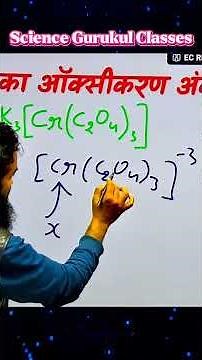 Science Gurukul Classes
EC R
का ऑक्सीकरण अं
K₃[Cr(C₂O₄)₃]
[Cr(C₂O₄)₃]⁻³
x